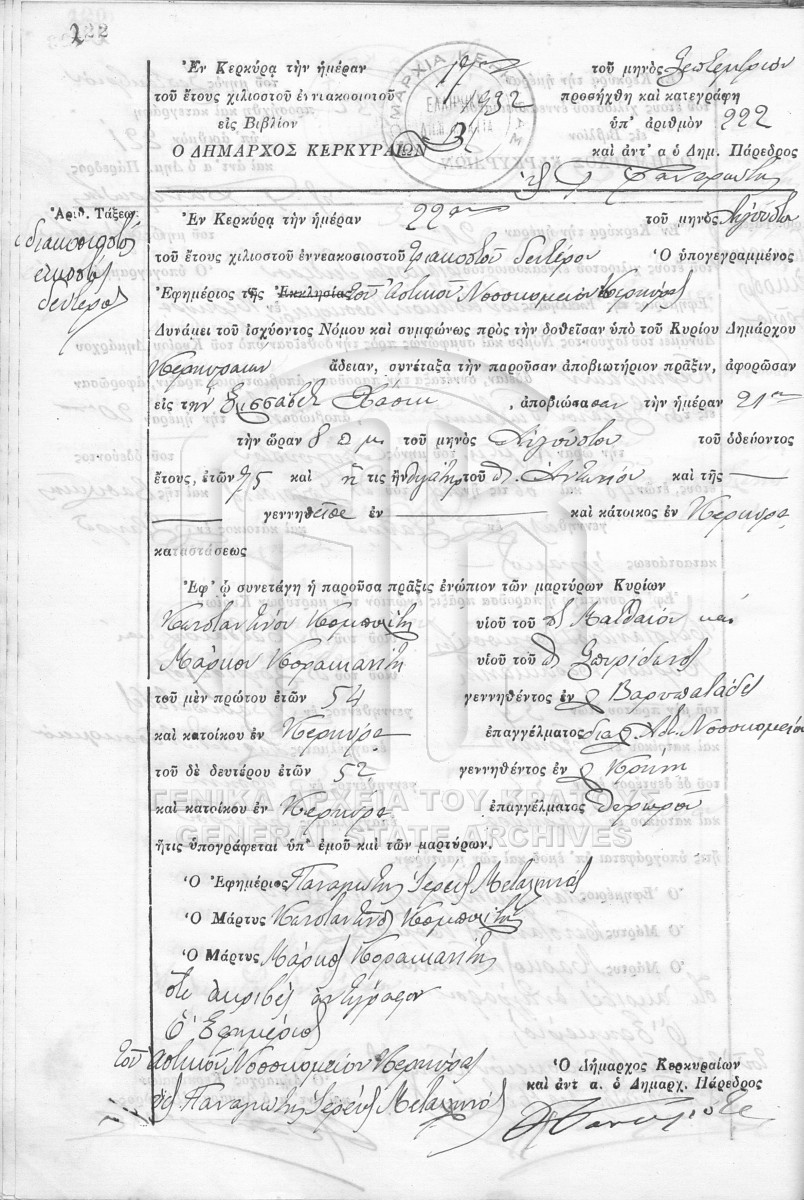 222
Ἐν Κερκύρᾳ τὴν ἡμέραν τοῦ μηνὸς Σεπτεμβρίου
τοῦ ἔτους χιλιοστοῦ ἐννιακοσιοτοῦ 1932 προσήχθη καὶ κατεγράφη
εἰς Βιβλίον ὑπ' ἀριθμὸν 222
Ο ΔΗΜΑΡΧΟΣ ΚΕΡΚΥΡΑΙΩΝ καὶ ἀντ' α ὁ Δημ. Πάρεδρος
Ἀριθ. Τάξεως
διακοσιοστὸς
εἰκοστὸς
δεύτερος
Ἐν Κερκύρᾳ τὴν ἡμέραν 22αν τοῦ μηνὸς Αὐγούστου
τοῦ ἔτους χιλιοστοῦ ἐννεακοσιοστοῦ τριακοστοῦ δευτέρου Ὁ ὑπογεγραμμένος
Ἐφημέριος τῆς Ἐκκλησίας τοῦ Ἀστικοῦ Νοσοκομείου Κερκύρας
Δυνάμει τοῦ ἰσχύοντος Νόμου καὶ συμφώνως πρὸς τὴν δοθεῖσαν ὑπὸ τοῦ Κυρίου Δημάρχου
Κερκυραίων ἄδειαν, συνέταξα τὴν παροῦσαν ἀποβιωτήριον πρᾶξιν, ἀφορῶσαν
εἰς τὴν Ἐλισσάβετ , ἀποβιώσασαν τὴν ἡμέραν 21ην
τὴν ὥραν 8 π μ τοῦ μηνὸς Αὐγούστου τοῦ ὁδεύοντος
ἔτους, ἐτῶν 75 καὶ ἥ τις ἦν θυγάτηρ τοῦ π. Ἀντωνίου καὶ τῆς
γεννηθεῖσα ἐν καὶ κάτοικος ἐν Κερκύρᾳ
καταστάσεως
Ἐφ' ᾧ συνετάγη ἡ παροῦσα πρᾶξις ἐνώπιον τῶν μαρτύρων Κυρίων
Κωνσταντίνου Κομπολίτη υἱοῦ τοῦ π Ματθαίου καὶ
Μάρκου Κορακιανίτη υἱοῦ τοῦ π Σπυρίδωνος
τοῦ μὲν πρώτου ἐτῶν 54 γεννηθέντος ἐν Βαρυπατάδες
καὶ κατοίκου ἐν Κερκύρᾳ ἐπαγγέλματος Ἀστ. Νοσοκομείου
τοῦ δὲ δευτέρου ἐτῶν 52 γεννηθέντος ἐν
ΓΕΝΙΚΑ ΑΡΧΕΙΑ ΤΟΥ ΚΡΑΤΟΥΣ
καὶ κατοίκου ἐν Κερκύρᾳ ἐπαγγέλματος θυρωροῦ
GENERAL STATE ARCHIVES
ἥτις ὑπογράφεται ὑπ' ἐμοῦ καὶ τῶν μαρτύρων.
Ὁ Ἐφημέριος Παναγιώτης Ἱερεὺς Μεταλληνός
Ὁ Μάρτυς Κωνσταντῖνος Κομπολίτης
Ὁ Μάρτυς Μάρκος Κορακιανίτης
ὅτι ἀκριβὲς ἀντίγραφον
Ὁ Ἐφημέριος
τοῦ Ἀστικοῦ Νοσοκομείου Κερκύρας
Παναγιώτης Ἱερεὺς Μεταλληνός
Ὁ Δήμαρχος Κερκυραίων
καὶ ἀντ α. ὁ Δημαρχ. Πάρεδρος